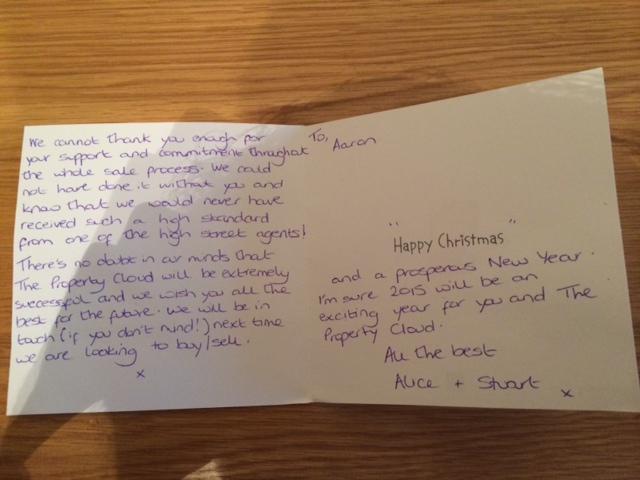 We cannot thank you enough for
your support and commitment throughout
the whole sale process. We could
not have done it without you and
know that we would never have
received such a high standard
from one of the high street agents!
There's no doubt in our minds that
The Property Cloud will be extremely
successful and we wish you all the
best for the future. We will be in
touch (if you don't mind!) next time
we are looking to buy/sell.
x
To,
Aaron
" "
Happy Christmas
and a prosperous New Year.
I'm sure 2015 will be an
exciting year for you and The
Property Cloud.
All the best
Alice + Stuart x